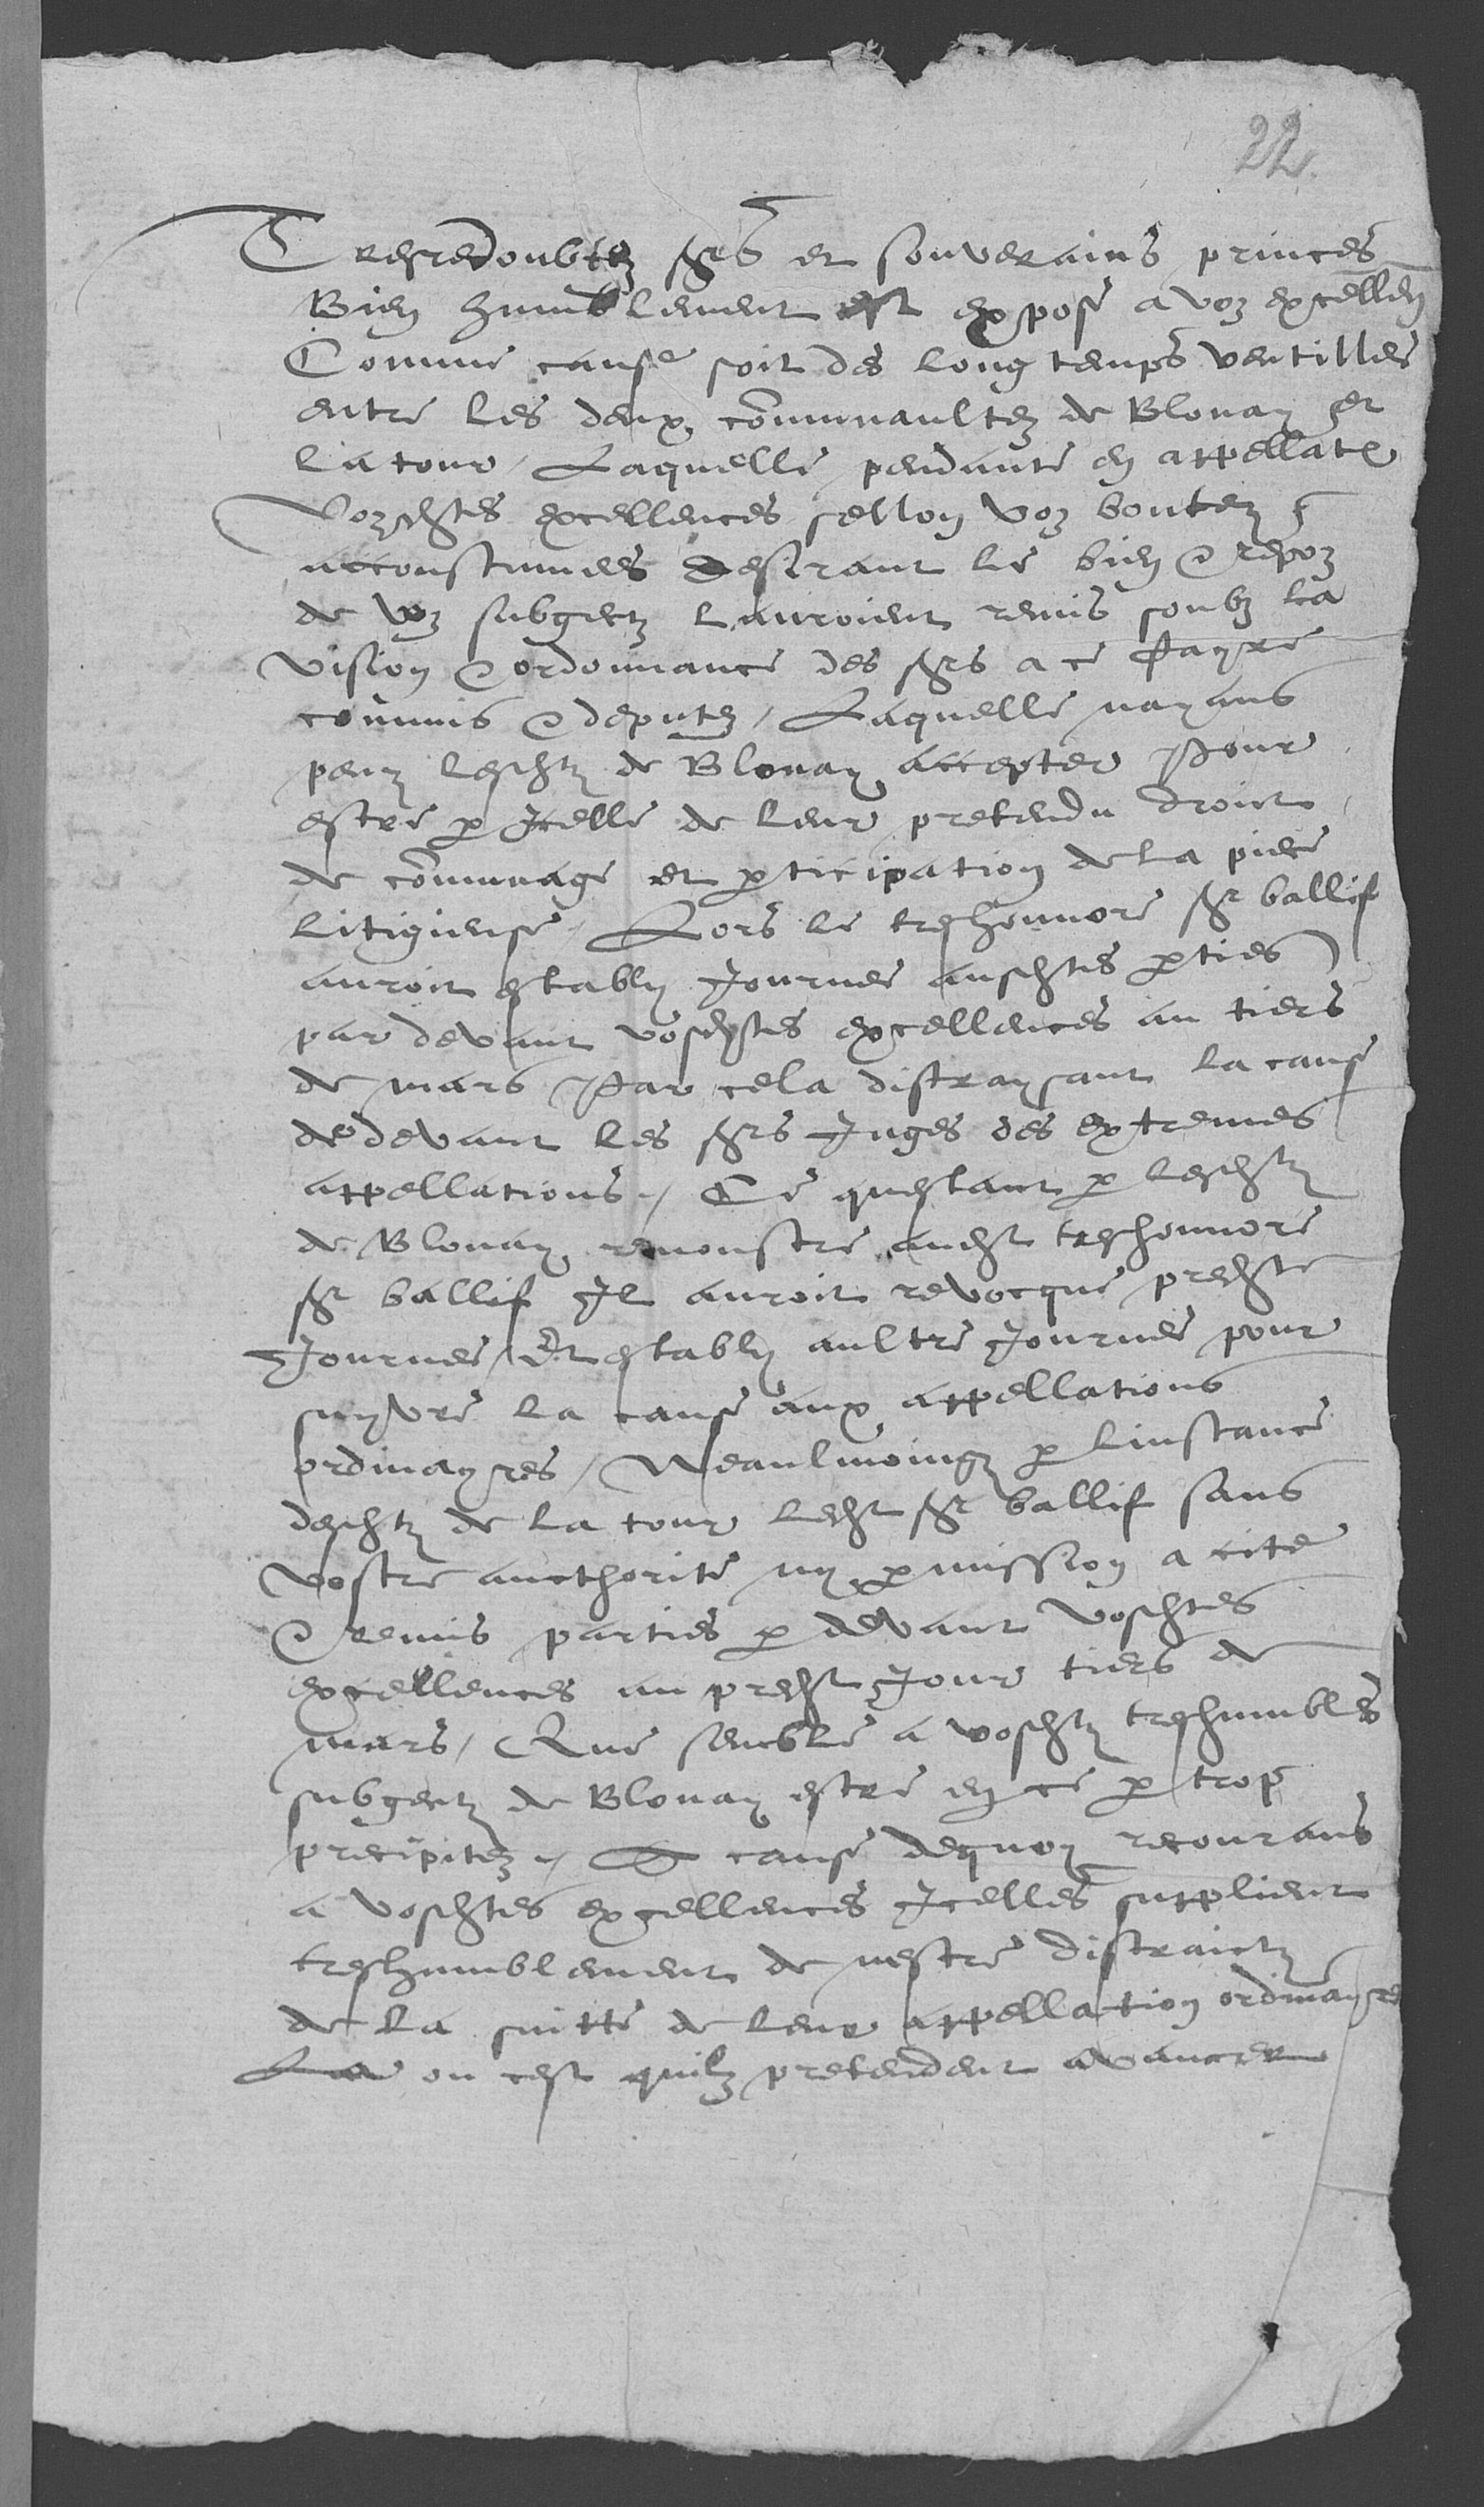 22.
Tresredoubtez sgrs et souverains princes
Bien humblement est expose a voz excellen
Comme cause soit des long temps ventillee
entre les deux comunaultez de Blonay et
la tour / Laquelle pendante en appellatn
Vozsdtes excellences sellon voz boutez
accoustumees desirant le bien & repoz
de voz subgectz lauroient remis soubz la
vision & ordonnance des sgrs a ce fayre
commis & deputez / Laquelle nayans
peuz lesdtz de Blonay accepter Pour
estre p icelle de leur pretendu droict
de comunage et pticipation de la piece
litigieuse / Lors le treshonnore sgr ballif
auroit estably journee ausdtes pties
par devant vosdtes excellences au tiers
de mars Par cela distraysant la cause
de devant les sgrs Juges des extremes
appellations / Ce questant p lesdtz
de Blonay remonstre audt treshonnore
sgr ballif Il auroit revocque predte
Journee / Et estably aultre journee pour
suyvre la cause aux appellations
ordinayres / Neaulmoingz p linstance
desdtz de la tour ledt sgr ballif sans
vostre aucthorite ny pmission a cite
& remis parties p devant vosdtes
excellences au predt jour tiers de
mars / Que semble a vosdtz treshumbles
subgectz de Blonay estre en ce p trop
precipitez / A cause dequoy recourans
a vosdtes excellences jcelles supplient
treshumblement de nestre distraictz
de la suitte de leur appellation ordinayre
La ou cest quilz pretendent avancer